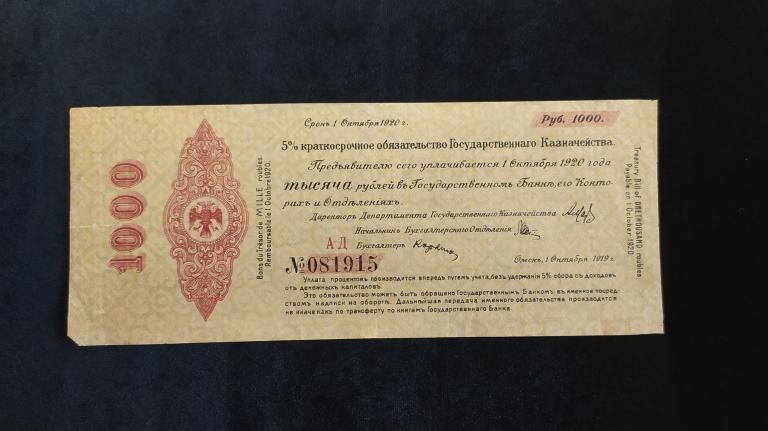 1000
Bons du Trésor de MILLE roubles
Remboursable le 1 Octobre 1920.
Срокъ 1 Октября 1920 г.
Руб. 1000.
5% краткосрочное обязательство Государственнаго Казначейства.
Предъявителю сего уплачивается 1 Октября 1920 года
тысяча рублей въ Государственномъ Банкѣ, его Конто-
рахъ и Отдѣленіяхъ.
Директоръ Департамента Государственнаго Казначейства
Начальникъ Бухгалтерскаго Отдѣленія
Бухгалтеръ
А-Д
№ 081915
Омскъ, 1 Октября 1919 г.
Уплата процентовъ производится впередъ путемъ учета, безъ удержанія 5% сбора съ доходовъ
отъ денежныхъ капиталовъ.
Это обязательство можетъ быть обращено Государственнымъ Банкомъ въ именное посред-
ствомъ надписи на оборотѣ. Дальнѣйшая передача именного обязательства производится
не иначе какъ по трансферту по книгамъ Государственнаго Банка.
Treasury Bill of ONE THOUSAND roubles
Payable on 1 October 1920